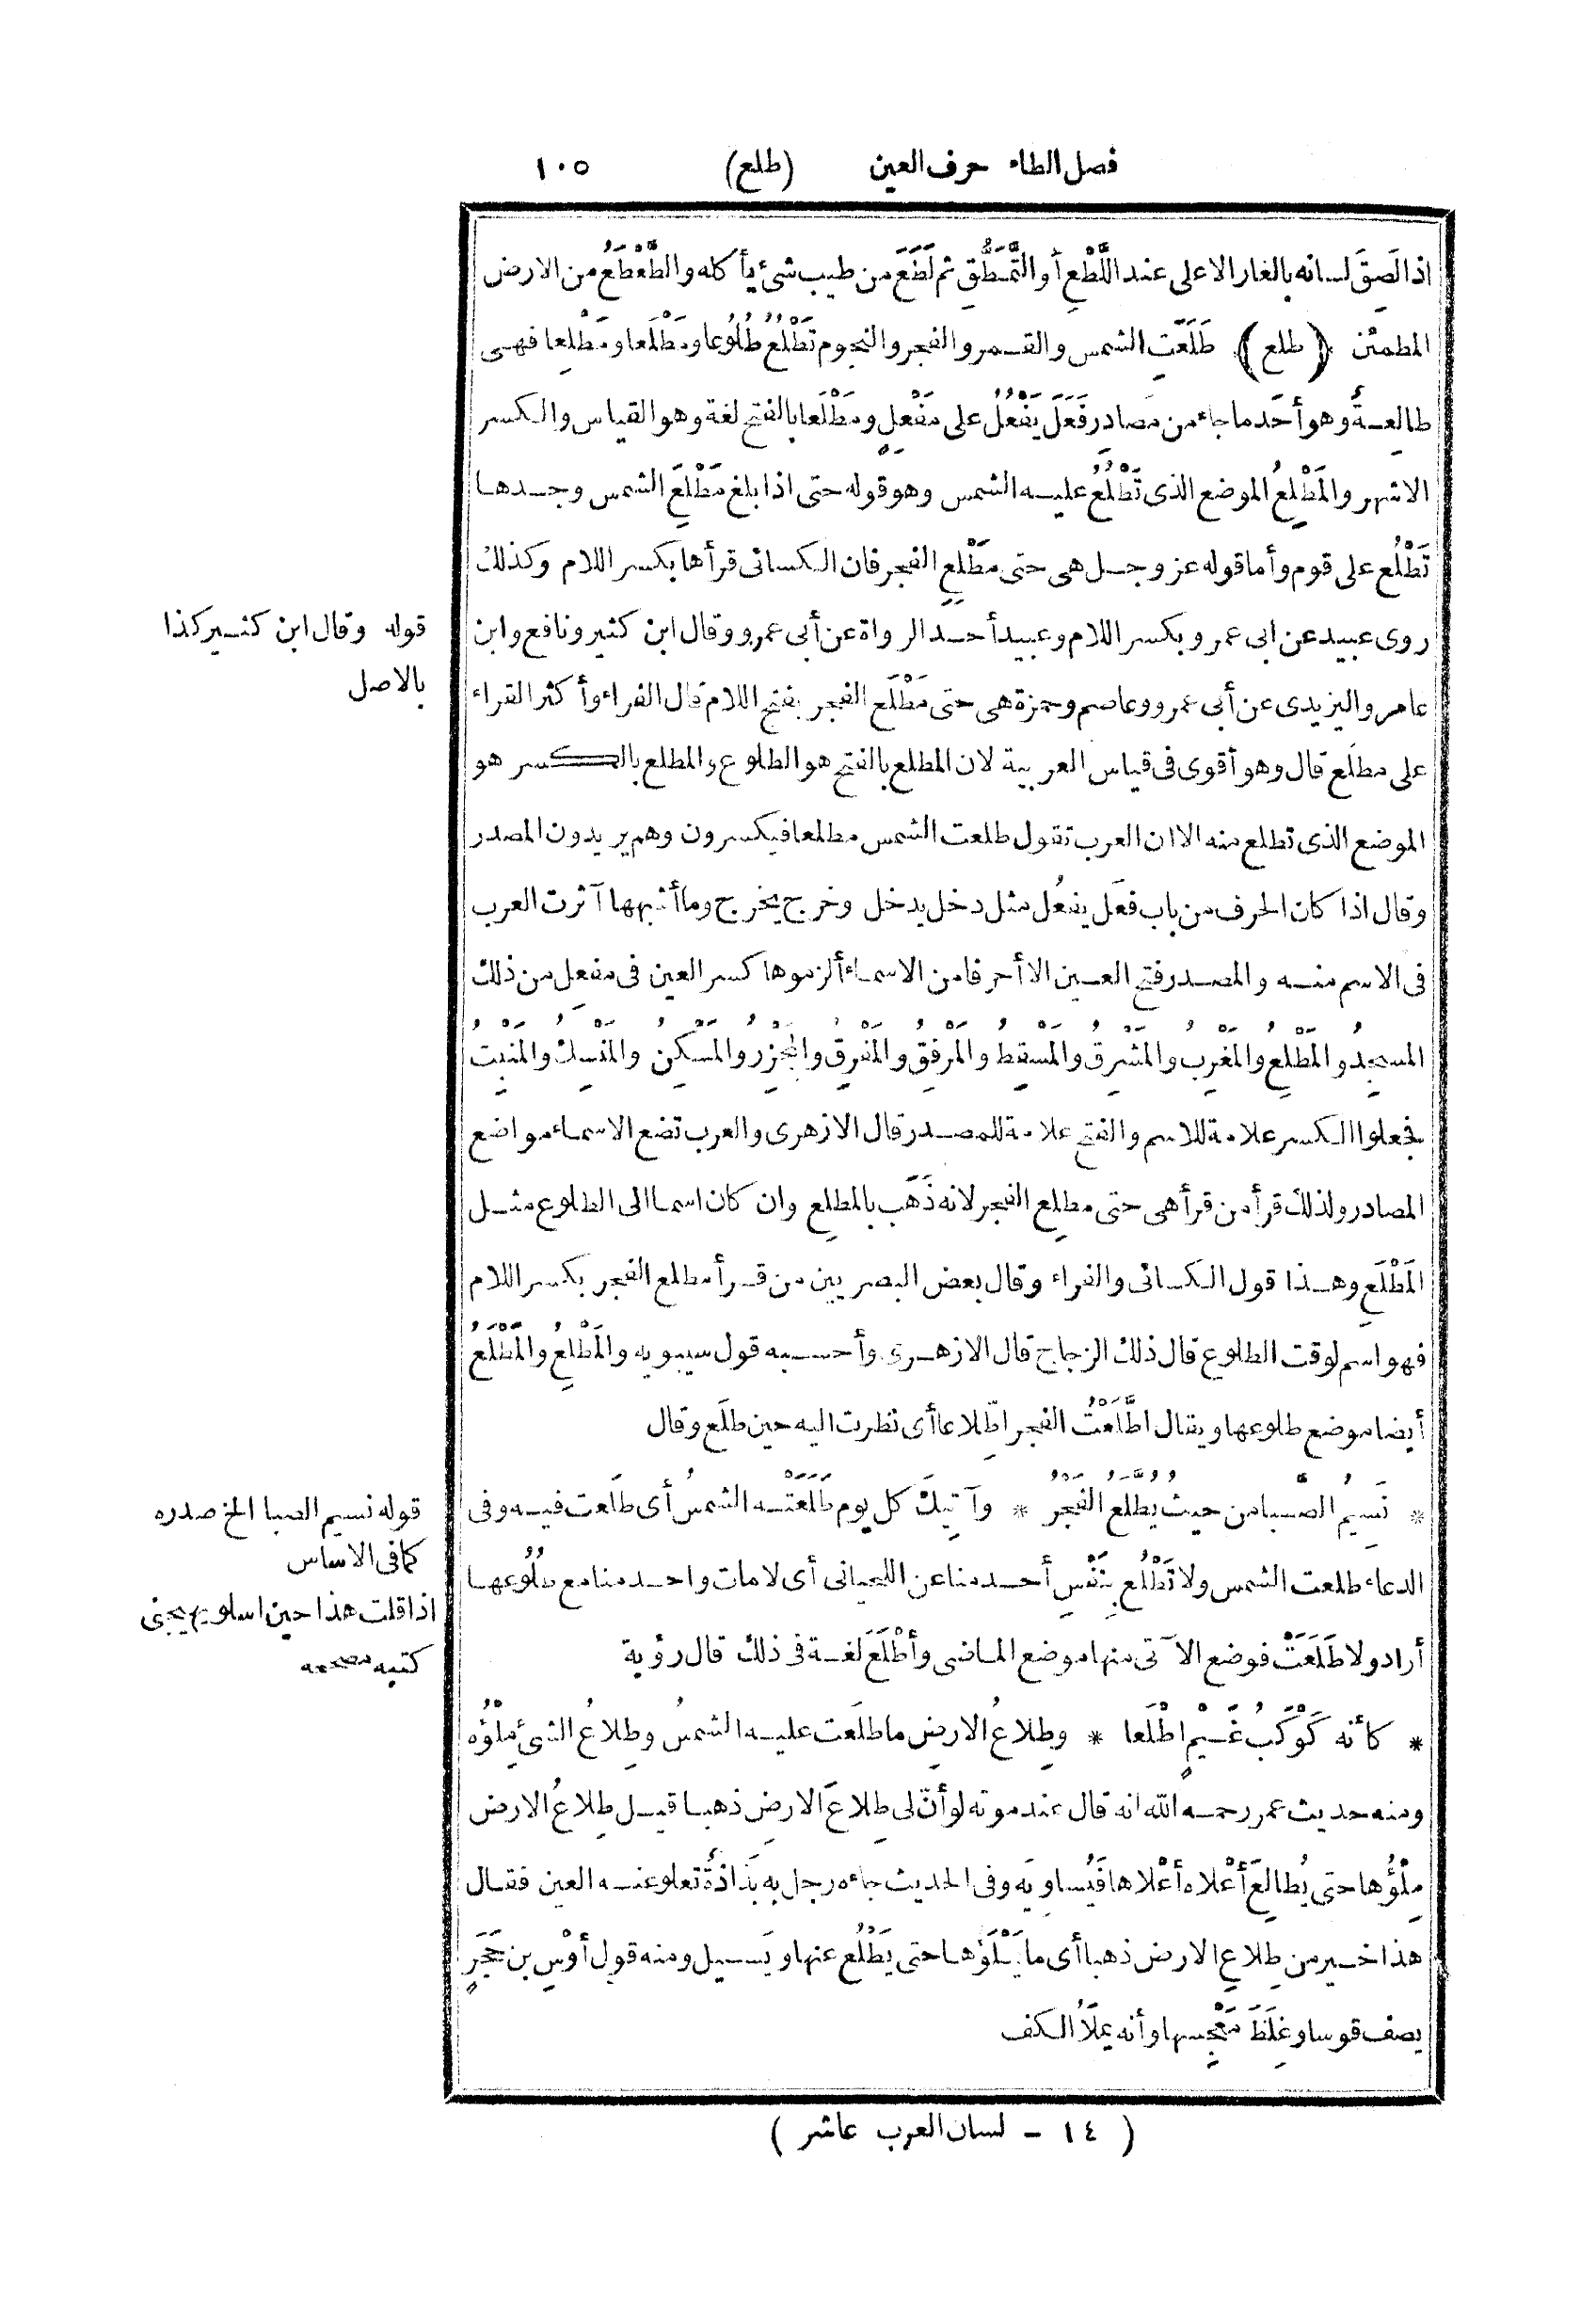 فصل الطاء حرف العين (طلع) ١٠٥
اذا لَصِقَ لسانه بالغار الاعلى عند اللَّطْعِ أو التَّمَطُّقِ ثم لَطَعَ من طيب شئ يأكله والطَّعْطَعُ من الارض
المطمئن (طلع) طَلَعَتِ الشمس والقمر والفجر والنجوم تَطْلُعُ طُلُوعا ومَطْلَعا ومَطْلِعا فهى
طالِعةٌ وهو أحَد ما جاء من مَصادِر فَعَلَ يَفْعُلُ على مَفْعِلٍ ومَطْلَعا بالفتح لغة وهو القياس والكسر
الاشهر والمَطْلِعُ الموضع الذى تَطْلُعُ عليه الشمس وهو قوله حتى اذا بلغ مَطْلِعَ الشمس وجدها
تَطْلُع على قوم وأما قوله عز وجل هى حتى مَطْلِعِ الفجر فان الكسائى قرأها بكسر اللام وكذلك
روى عبيد عن ابى عمرو بكسر اللام وعبيد أحد الرواة عن أبى عمرو وقال ابن كثير ونافع وابن
عامر واليزيدى عن أبى عمرو وعاصم وحمزة هى حتى مَطْلَع الفجر بفتح اللام قال الفراء وأكثر القراء
على مطلَع قال وهو أقوى فى قياس العربية لان المطلع بالفتح هو الطلوع والمطلع بالكسر هو
الموضع الذى تطلع منه الا ان العرب تقول طلعت الشمس مطلعا فيكسرون وهم يريدون المصدر
وقال اذا كان الحرف من باب فعَل يفعُل مثل دخل يدخل وخرج يخرج وما أشبهها آثرت العرب
فى الاسم منه والمصدر فتح العين الا أحرفا من الاسماء ألزموها كسر العين فى مفعِل من ذلك
المسجِدُ والمَطْلِعُ والمَغْرِبُ والمَشْرِقُ والمَسْقِطُ والمَرْفِقُ والمَفْرِقُ والمَجْزِرُ والمَسْكِنُ والمَنْسِكُ والمَنْبِتُ
فجعلوا الكسر علامة للاسم والفتح علامة للمصدر قال الازهرى والعرب تضع الاسماء مواضع
المصادر ولذلك قرأ من قرأ هى حتى مطلِع الفجر لانه ذَهَب بالمطلِع وان كان اسما الى الطلوع مثل
المَطْلَعِ وهذا قول الكسائى والفراء وقال بعض البصريين من قرأ مطلِع الفجر بكسر اللام
فهو اسم لوقت الطلوع قال ذلك الزجاج قال الازهرى وأحسبه قول سيبويه والمَطْلِعُ والمَطْلَعُ
أيضا موضع طلوعها ويقال اطَّلَعْتُ الفجر اطِّلاعا أى نظرت اليه حين طلَع وقال
* نَسِيمُ الصَّبا من حيث يُطَّلَعُ الفَجْرُ * وآتِيكَ كل يوم طَلَعَتْه الشمسُ أى طلَعت فيه وفى
الدعاء طلعت الشمس ولا تَطْلُع بِنَفْسِ أحد منا عن اللحيانى أى لا مات واحد منا مع طُلُوعها
أراد ولا طَلَعَتْ فوضع الآتى منها موضع الماضى وأطْلَعَ لغة فى ذلك قال رؤبة
* كأنه كَوْكَبُ غَيْمٍ اطْلَعا * وطِلاعُ الارضِ ما طلَعت عليه الشمسُ وطِلاعُ الشئ مِلْؤُه
ومنه حديث عمر رحمه الله انه قال عند موته لو أنّ لى طِلاعَ الارضِ ذهبا قيل طِلاعُ الارض
مِلْؤُها حتى يُطالِعَ أعْلاه أعْلاها فَيُساوِيَه وفى الحديث جاءه رجل به بَذاذةٌ تعلو عنه العين فقال
هذا خير من طِلاعِ الارض ذهبا أى ما يَمْلَؤُها حتى يَطْلُع عنها ويَسيل ومنه قول أوْسِ بن حَجَرٍ
يصف قوسا وغِلَظَ مَعْجِسِها وأنه يملَأ الكف
قوله وقال ابن كثير كذا
بالاصل
قوله نسيم الصبا الخ صدره
كما فى الاساس
اذا قلت هذا حين اسلو يهيجنى
كتبه مصححه
( ١٤ - لسان العرب عاشر )